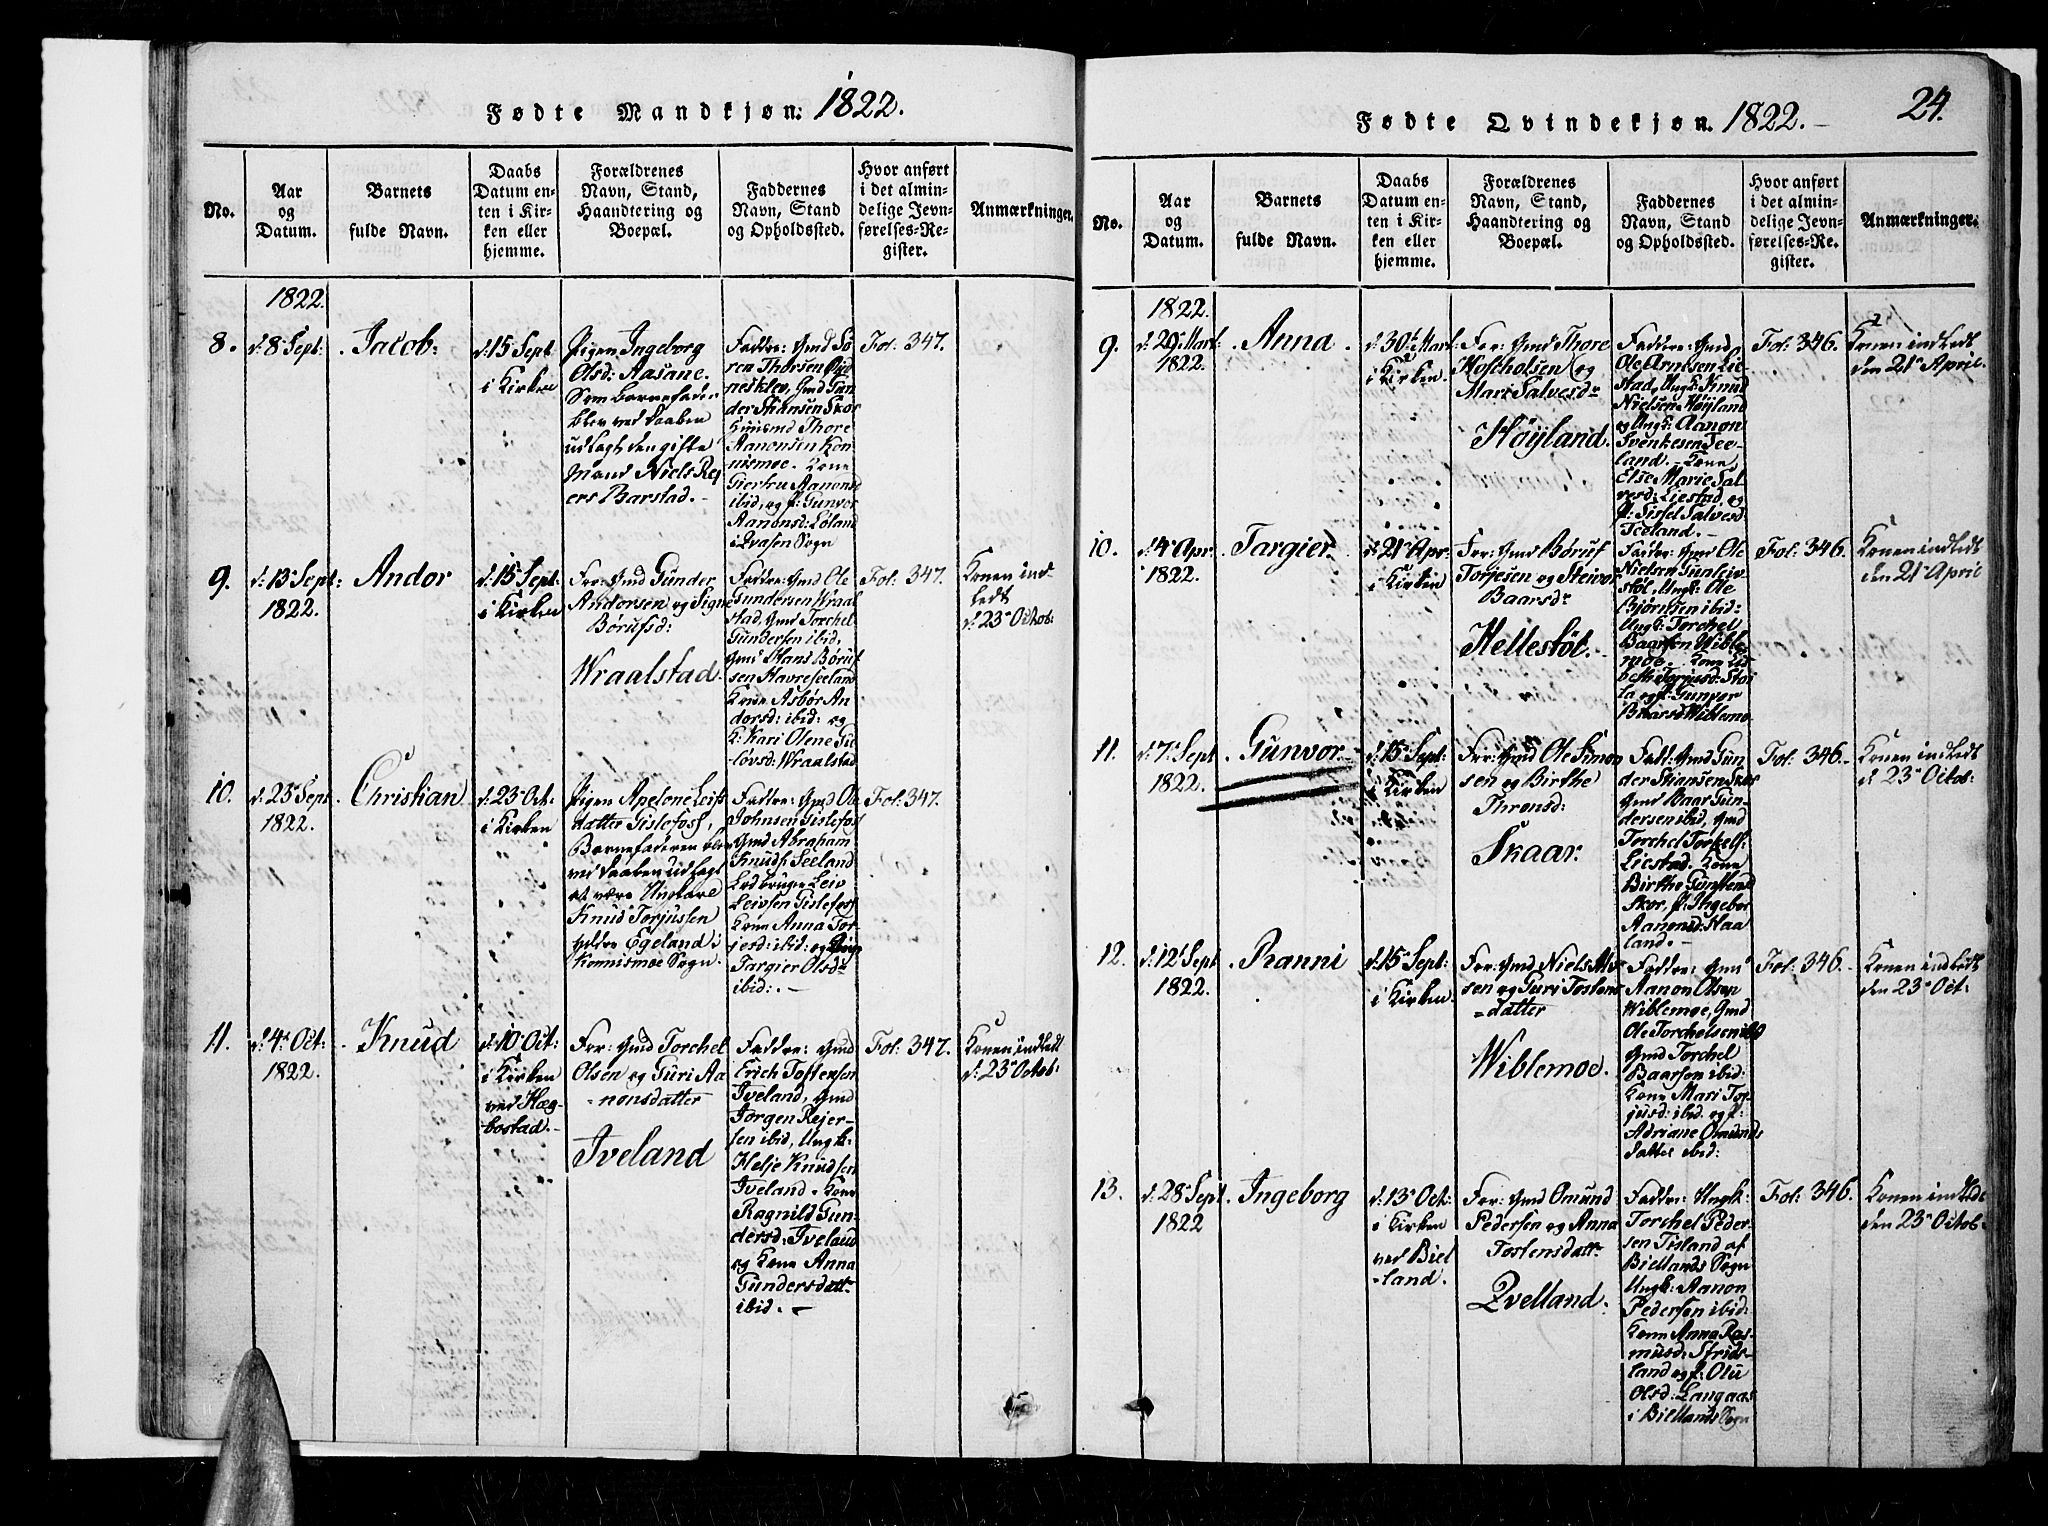 Fødte Mandkjøn: 1822.
No.
Aar
og
Datum.
Barnets
fulde Navn.
Daabs
Datum en-
ten i Kir-
ken eller
hjemme.
Forældrenes
Navn, Stand,
Haandtering og
Boepæl.
Faddernes
Navn, Stand
og Opholdssted.
Hvor anført
i det almin-
delige Jevn-
førelses-Re-
gister.
Anmærkninger.
1822.
8.
d: 8de Sept:
Jacob:
d: 15 Sept
i Kirken
Pigen Ingeborg
Olsd: Aasane.
Som barnefader
blev ved Daaben
udlagt den gifte
Mand Niels Rej
ers Barstad.
Faddre: Gmd Sö
ren Thorsen
nesklev, Gmd Gun
der Stiansen Skor
Huusmd Thore
Aanonsen Kon
nismoe. Kone
Gjertru Aanonsd
ibid, og p: Gunvor
Aanonsd: Løland
i Qvasen Sogn
Fol: 347.
9.
d: 13 Sept:
1822.
Andor
d: 15 Sept:
i Kirken
For: Gmd Gunder
Andorsen og Signe
Børufsd:
Wraalstad.
Faddre: Gmd Ole
Gundersen Wraal
stad, Gmd Torchel
Gundersen ibid,
Gmd Hans Børuf
sen Havreseeland
Kone Asbør An
dorsd: ibid: og
K: Kari Olene Gu
løvsd: Wraalstad
Fol: 347.
Konen ind
ledt
d: 23de Octob:
10.
d: 23de Sept.
1822.
Christian
d: 23 Oct:
i Kirken
Pigen Apelone Leifs
datter Gislefoss,
Barnefaderen blev
ved Daaben udlagt
at være Ungkarl
Knud Torjussen
Egeland i
Konnismoe Sogn.
Faddre: Gmd Ole
Johnsen Gislefoss
Gmd Abraham
Knuds: Seeland
Leiv
Leivsen Gislefoss
Kone Anna Tor
jesd: ibid: og Pige
Targier Olsdr
ibid:. -
Fol: 347.
11.
d: 4de Oct:
1822.
Knud
d: 10 Oct:
i Kirken
ved Hæg-
bostad.
For: Gmd Torchel
Olsen og Guri Aa
nonsdatter
Iveland
Faddre: Gmd
Erich Tostensen
Iveland, Gmd
Jorgen Rejer-
sen ibid, Ungk:
Helje Knudsen
Iveland. Kone
Ragnild Gun
dersd: Iveland
og Kone Anna
Gundersdatt:
ibid. -
Fol: 347.
Konen indledt
d: 23de Octob:
Fødte Qvindekjøn. 1822. -
24.
No.
Aar
og
Datum.
Barnets
fulde Navn.
Daabs
Datum en-
ten i Kir-
ken eller
hjemme.
Forældrenes
Navn, Stand,
Haandtering og
Boepæl.
Faddernes
Navn, Stand
og Opholdssted.
Hvor anført
i det almin-
delige Jevn-
førelses-Re-
gister.
Anmærkninger.
1822.
9.
d: 29de Mart:
1822.
Anna
d: 30te Mart
i Kirken
For: Gmd Thore
og
Mari Salvesdr
Høyland.
Faddre: Gmd
Ole Arnesen Lie
stad, Ungk: Knud
Nielsen Høyland
og Ungk: Aanon
Svenkesen See-
land. - Kone
Else Marie Sal
vesd: Liestad, og
p: Sissel Salvesd:
Seeland. -
Fol: 346.
Konen indledt
den 21de April.
10.
d: 4de Apr.
1822.
Targier
d: 21de Apr
i Kirken
For: Gmd Børuf
Torjesen og Steivor
Baarsdr
Hellestøl.
Faddre: Gmd Ole
Nielsen Gunleiv-
støl, Ungk: Ole
Bjørnsen ibid:
Ungk: Torchel
Baarsen Wible
moe. Kone Lid
beth Torjusd:
og p: Gunvor
Baarsd Wiblemo
Fol: 346.
Konen indledt
den 21de April
11.
d: 7de Sept
1822.
Gunvor
d: 15 Sept:
i Kirken
For: Gmd Ole Simon
sen og Birthe
Thronsd:
Skaar.
Fadd: Gmd Gun
der Stiansen Skor
Gmd Baar Gun-
dersen ibid, Gmd
Torchel Torkels:
Liestad. Kone
Birthe
Skor, p: Ingebor
Aanonsd: Haa
land. -
Fol: 346.
Konen indledt
d 23de Octob:
12.
d: 12te Sept
1822.
Ranni
d: 15 Sept:
i Kirken.
For: Gmd Niels
sen og Guri Tostens
datter
Wiblemoe.
Faddre: Gmd
Aanon Olsen
Wiblemoe, Gmd
Ole Torchelsen ibid
Gmd Torchel
Baarsen ibid:
Kone Mari Tor
jusd: ibid. og p:
Adriane Omunds
datter ibid:
Fol: 346.
Konen indledt
den 23de Oct:
13.
d: 28de Sept
1822
Ingeborg
d: 13de Oct:
i Kirken
ved Biel
land.
For: Gmd Omund
Pedersen og Anna
Tostensdatt:
Qvelland.
Faddre: Ungk:
Torchel Peder
sen Tisland af
Biellands Sogn
Ungk: Aanon
Pedersen ibid:
Kone Anna Ras
musd:
land og p: Olu
Olsd: Langaas
i Biellands Sogn
Fol: 346.
Konen indledt
den 23de Octob: